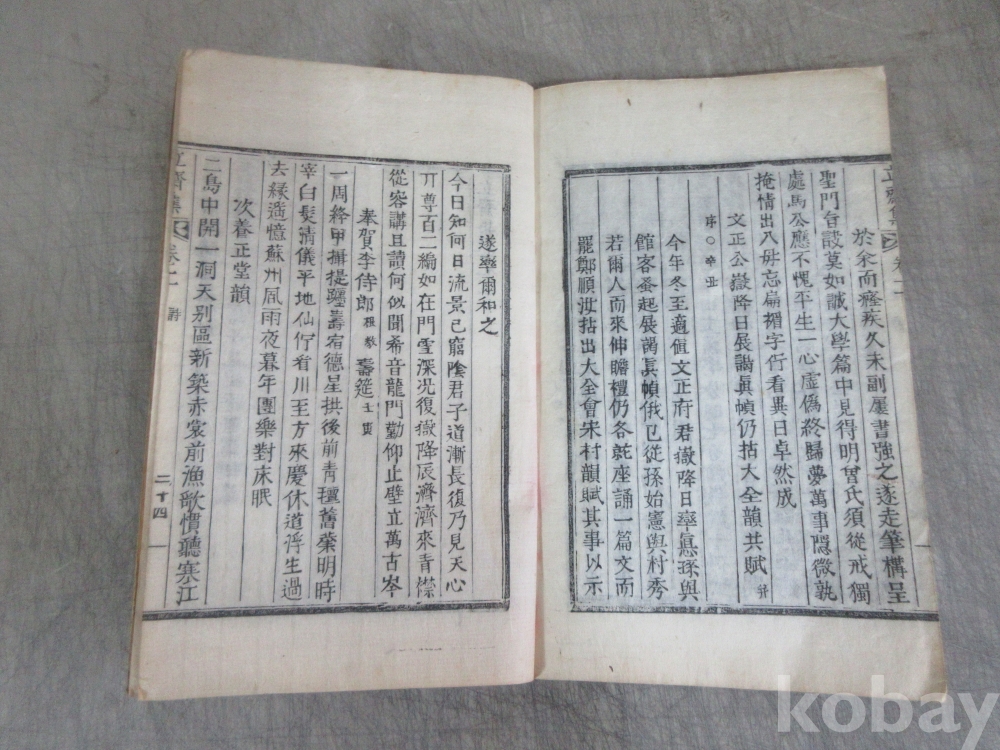 於余而癃疾久未副屢書強之遂走筆構呈
聖門旨訣莫如誠大學篇中見得明曾氏須從戒獨
處馬公應不愧平生一心虛僞終歸夢萬事隱微孰
掩情出入毋忘扁楣字佇看異日卓然成
文正公嶽降日展謁眞幀仍拈大全韻共賦 幷
序○辛丑
今年冬至適値文正府君嶽降日率數孫與
館客蚤起展謁眞幀俄已從孫始憲與村秀
若爾人而來伸瞻禮仍各就座誦一篇文而
罷鄭順汝拈出大全會宋村韻賦其事以示
遂率爾和之
今日知何日流景已窮陰君子道漸長復乃見天心
丌尊百二編如在門雪深况復嶽降辰濟濟來青襟
從容講且讀何似聞希音龍門勤仰止壁立萬古岑
奉賀李侍郎 壽筵
一周終甲攝提躔壽宿德星拱後前青氊舊業明時
宰白髮淸儀平地仙佇看川至方來慶休道浮生過
去緣遙憶蘇州風雨夜暮年團樂對床眠
次養正堂韻
二島中開一洞天别區新築赤裳前漁歌慣聽寒江
齋集 卷十一 詩 二十四
kobay